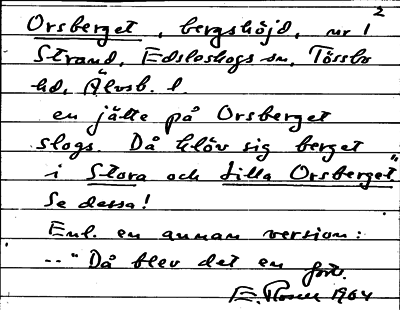 2
Orsberget, bergshöjd, nr 1
Strand, Edsleskogs sn, Tössbo
hd, Älvsb. l.
en jätte på Orsberget
slogs. Då klöv sig berget
i Stora och Lilla Orsberget"
Se dessa!
Enl. en annan version:
--" Då blev det en forts.
E. 1964